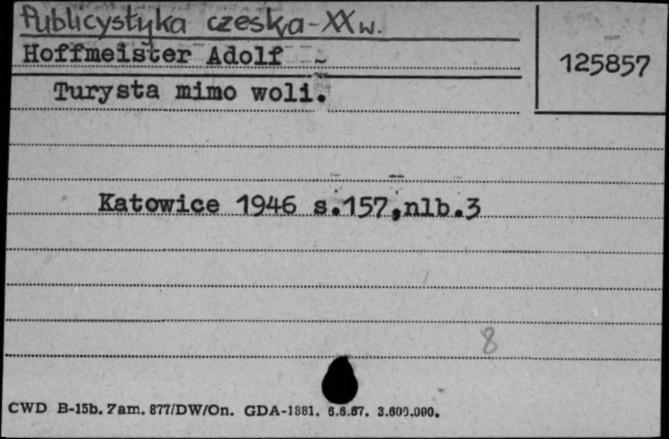 Publicystyka czeska-XX w.
Hoffmeister Adolf
125857
Turysta mimo woli.
Katowice 1946 s.157,nlb.3
8
CWD B-15b. Zam. 877/DW/On. GDA-1881. 6.6.67. 3.600.000.